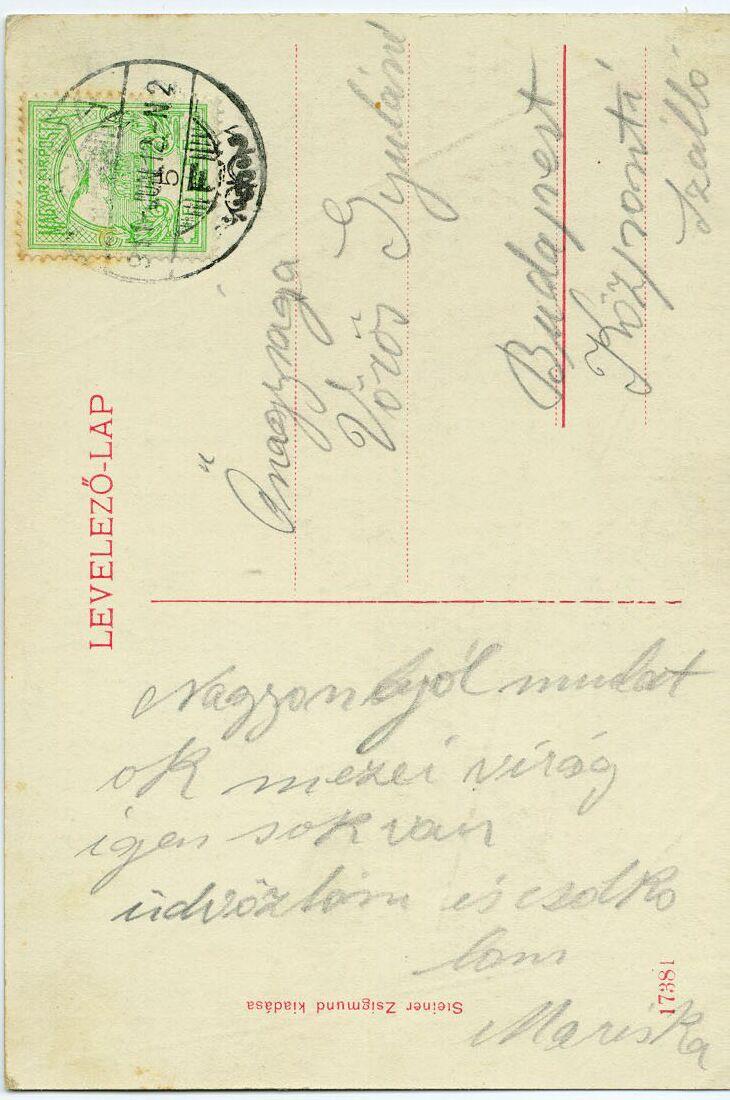 LEVELEZŐ-LAP
MAGYAR KIR. POSTA
5
Őnagysaga
Vörös Gyuláné
Budapest
Központi
Szálló
Nagyzon jól mulat
ok mezei virág
igen sok van
üdvözlöm és csolko
lom
Mariska
Steiner Zsigmund kiadása
17381